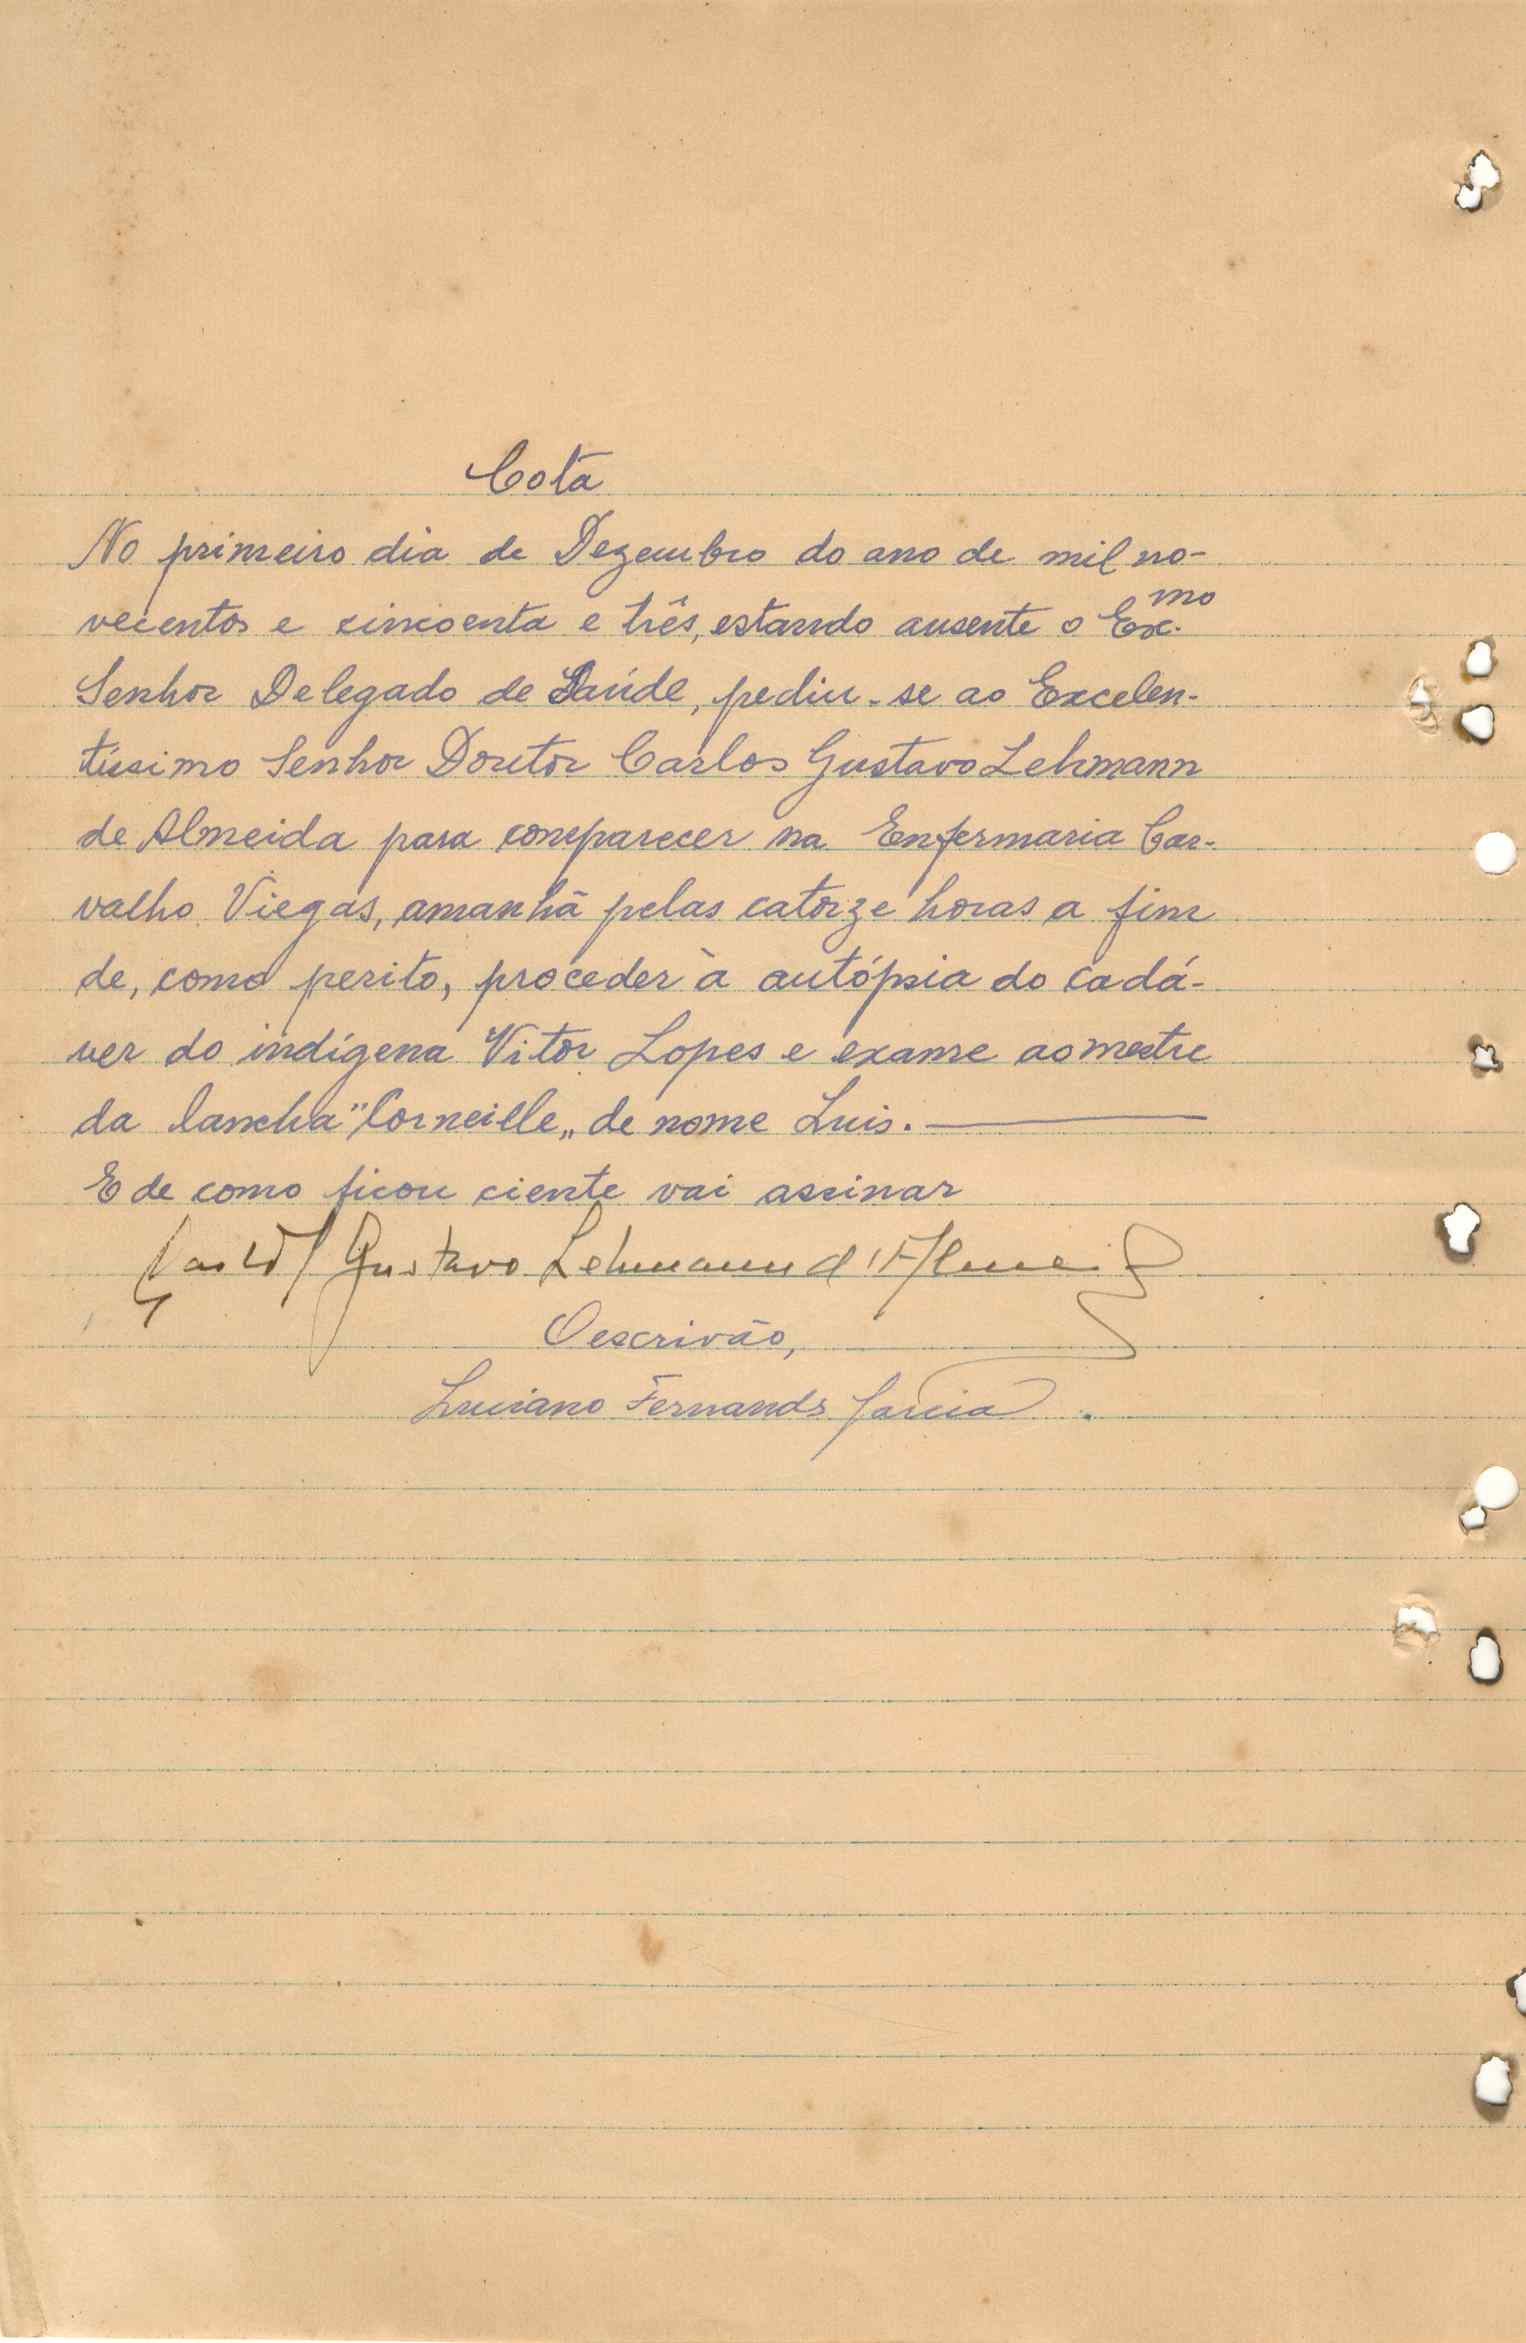 Cota
No primeiro dia de Dezembro do ano de mil no-
vecentos e cincoenta e três, estando ausente o Ex.mo
Senhor Delegado de Saúde, pediu-se ao Excelen-
tíssimo Senhor Doutor Carlos Gustavo Lehmann
de Almeida para comparecer na Enfermaria Car-
valho Viegas, amanhã pelas catorze horas a fim
de, como perito, proceder à autópsia do cadá-
ver do indígena Vitor Lopes e exame ao mestre
da lancha "Corneille„ de nome Luis.
E de como ficou ciente vai assinar
Carlos Gustavo Lehmann d'Almeida
O escrivão,
Luciano Fernandes Garcia.